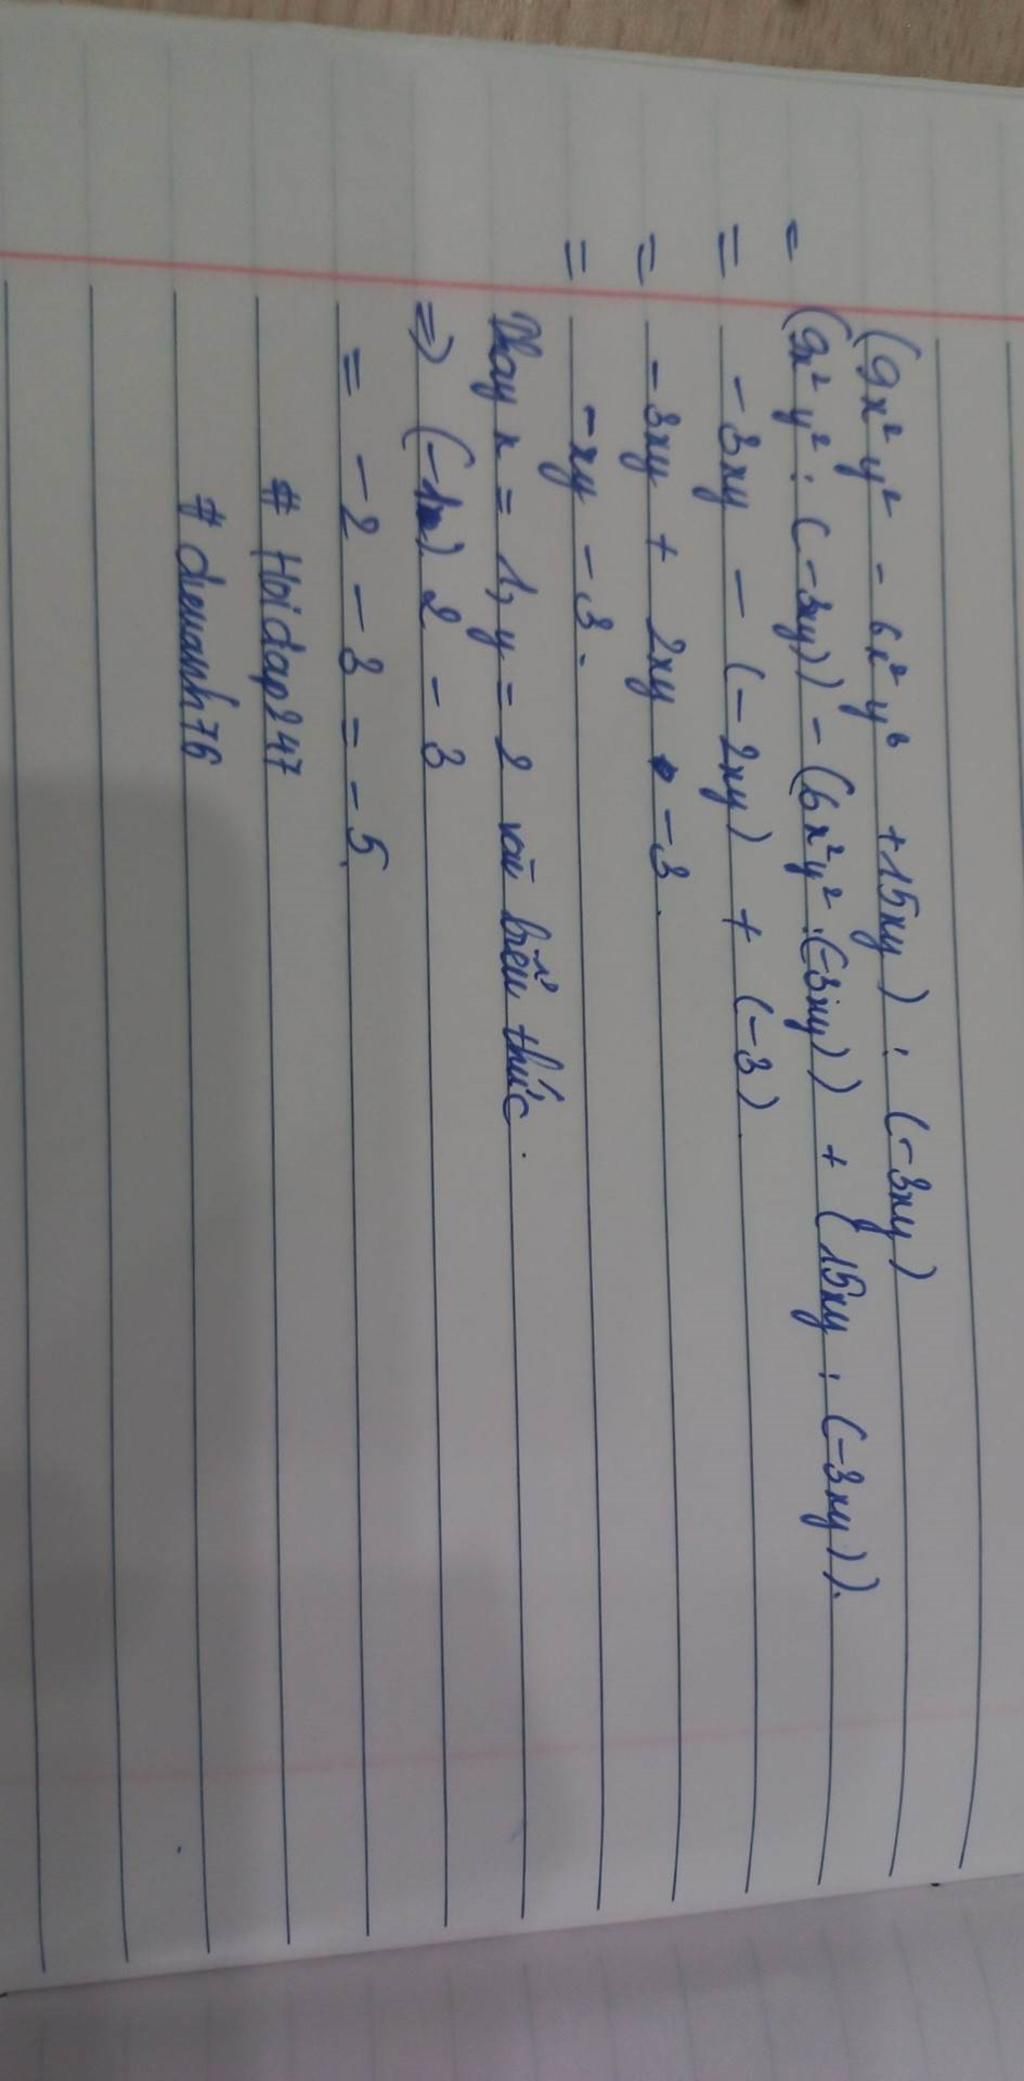 (9x² y² - 6x² y³ + 15xy) : (-3xy)
= (9x² y² : (-3xy)) - (6x² y² : (-3xy)) + (15xy : (-3xy)).
= -3xy - (-2xy) + (-3)
= -3xy + 2xy -3
= -xy - 3.
Thay x = 1, y = 2 vào biểu thức.
=> (-1) 2 - 3
= -2 - 3 = -5
# Hoidap247
# dieuanh76